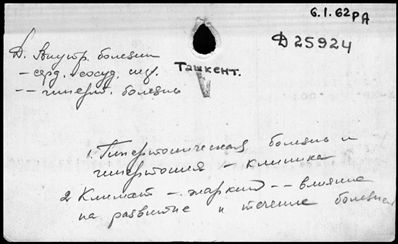 6.I.62РА
Д 25924
Д. Внутр. болезни
– серд. сосуд. сис.
Ташкент.
– – гиперт. болезнь
1. Гипертоническая болезнь и
гипертония – клиника
2 Климат – жаркий – – влияние
на развитие и течение болезни